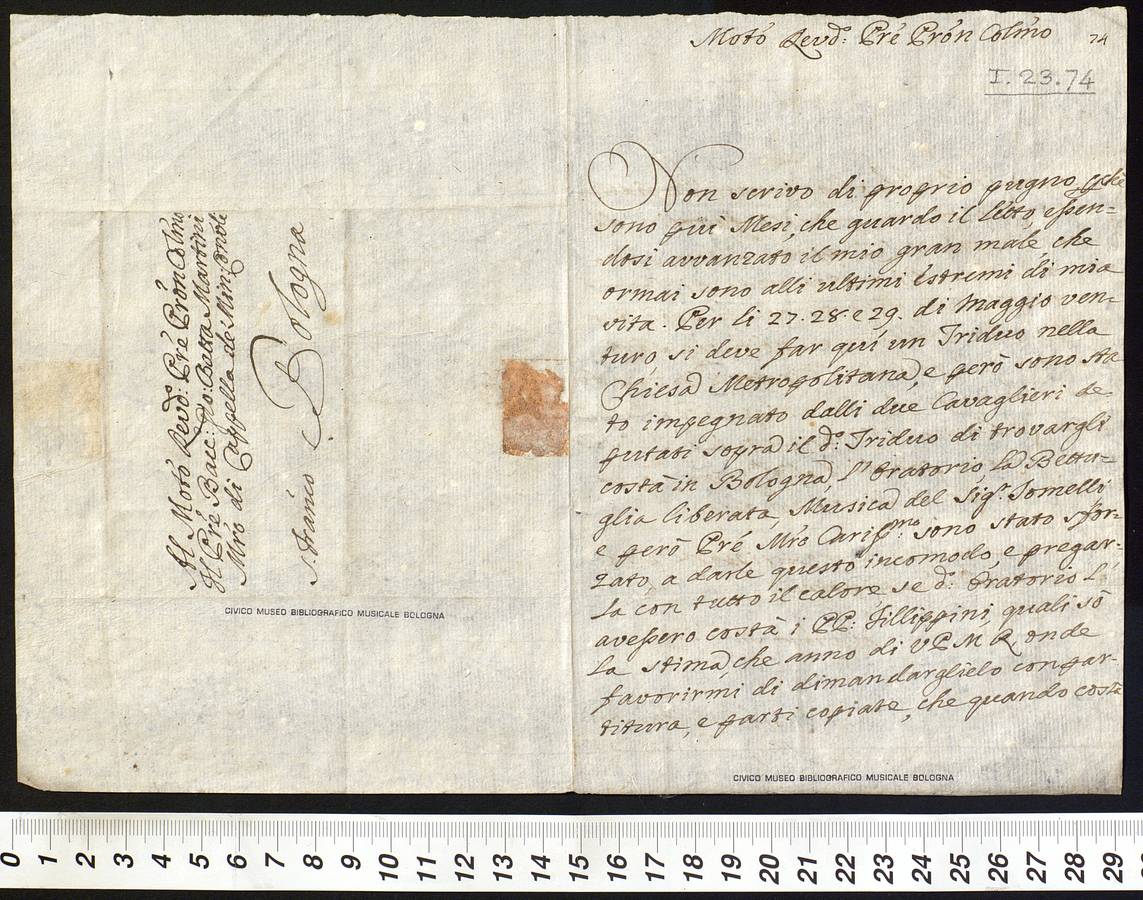 Al Moto Revd: Prē Prōn Colmo
Il Prē Bacc: Gio: Batta Martini
Mro di Cappella de Min: Onli
Bologna
S. Franco
Moto Revd: Prē Prōn Colmo 74
I.23.74
Non scrivo di proprio pugno
sono qui Mesi, che guardo il letto, essen=
dosi avvanzato il mio gran male che
ormai sono alli ultimi estremi di mia
vita. Per li 27. 28. e 29. di Maggio ven=
turo, si deve far qui un Triduo nella
Chiesa Metropolitana, e però sono sta
to impegnato dalli due Cavaglieri de
putati sopra il d: Triduo di trovargli
costà in Bologna, l'Oratorio, la Bettu=
glia liberata, Musica del Sigr. Jomelli
e però Prē Mro Carissmo sono stato sfor=
zato, a darle questo incomodo, e pregar=
la con tutto il calore se d: Oratorio l'
avessero costà i PP: Fillippini, quali sò
la stima, che anno di V P M R, onde
favorirmi di dimandarglielo con par=
titura, e parti copiate, che quando costà
CIVICO MUSEO BIBLIOGRAFICO MUSICALE BOLOGNA
CIVICO MUSEO BIBLIOGRAFICO MUSICALE BOLOGNA
0 1 2 3 4 5 6 7 8 9 10 11 12 13 14 15 16 17 18 19 20 21 22 23 24 25 26 27 28 29